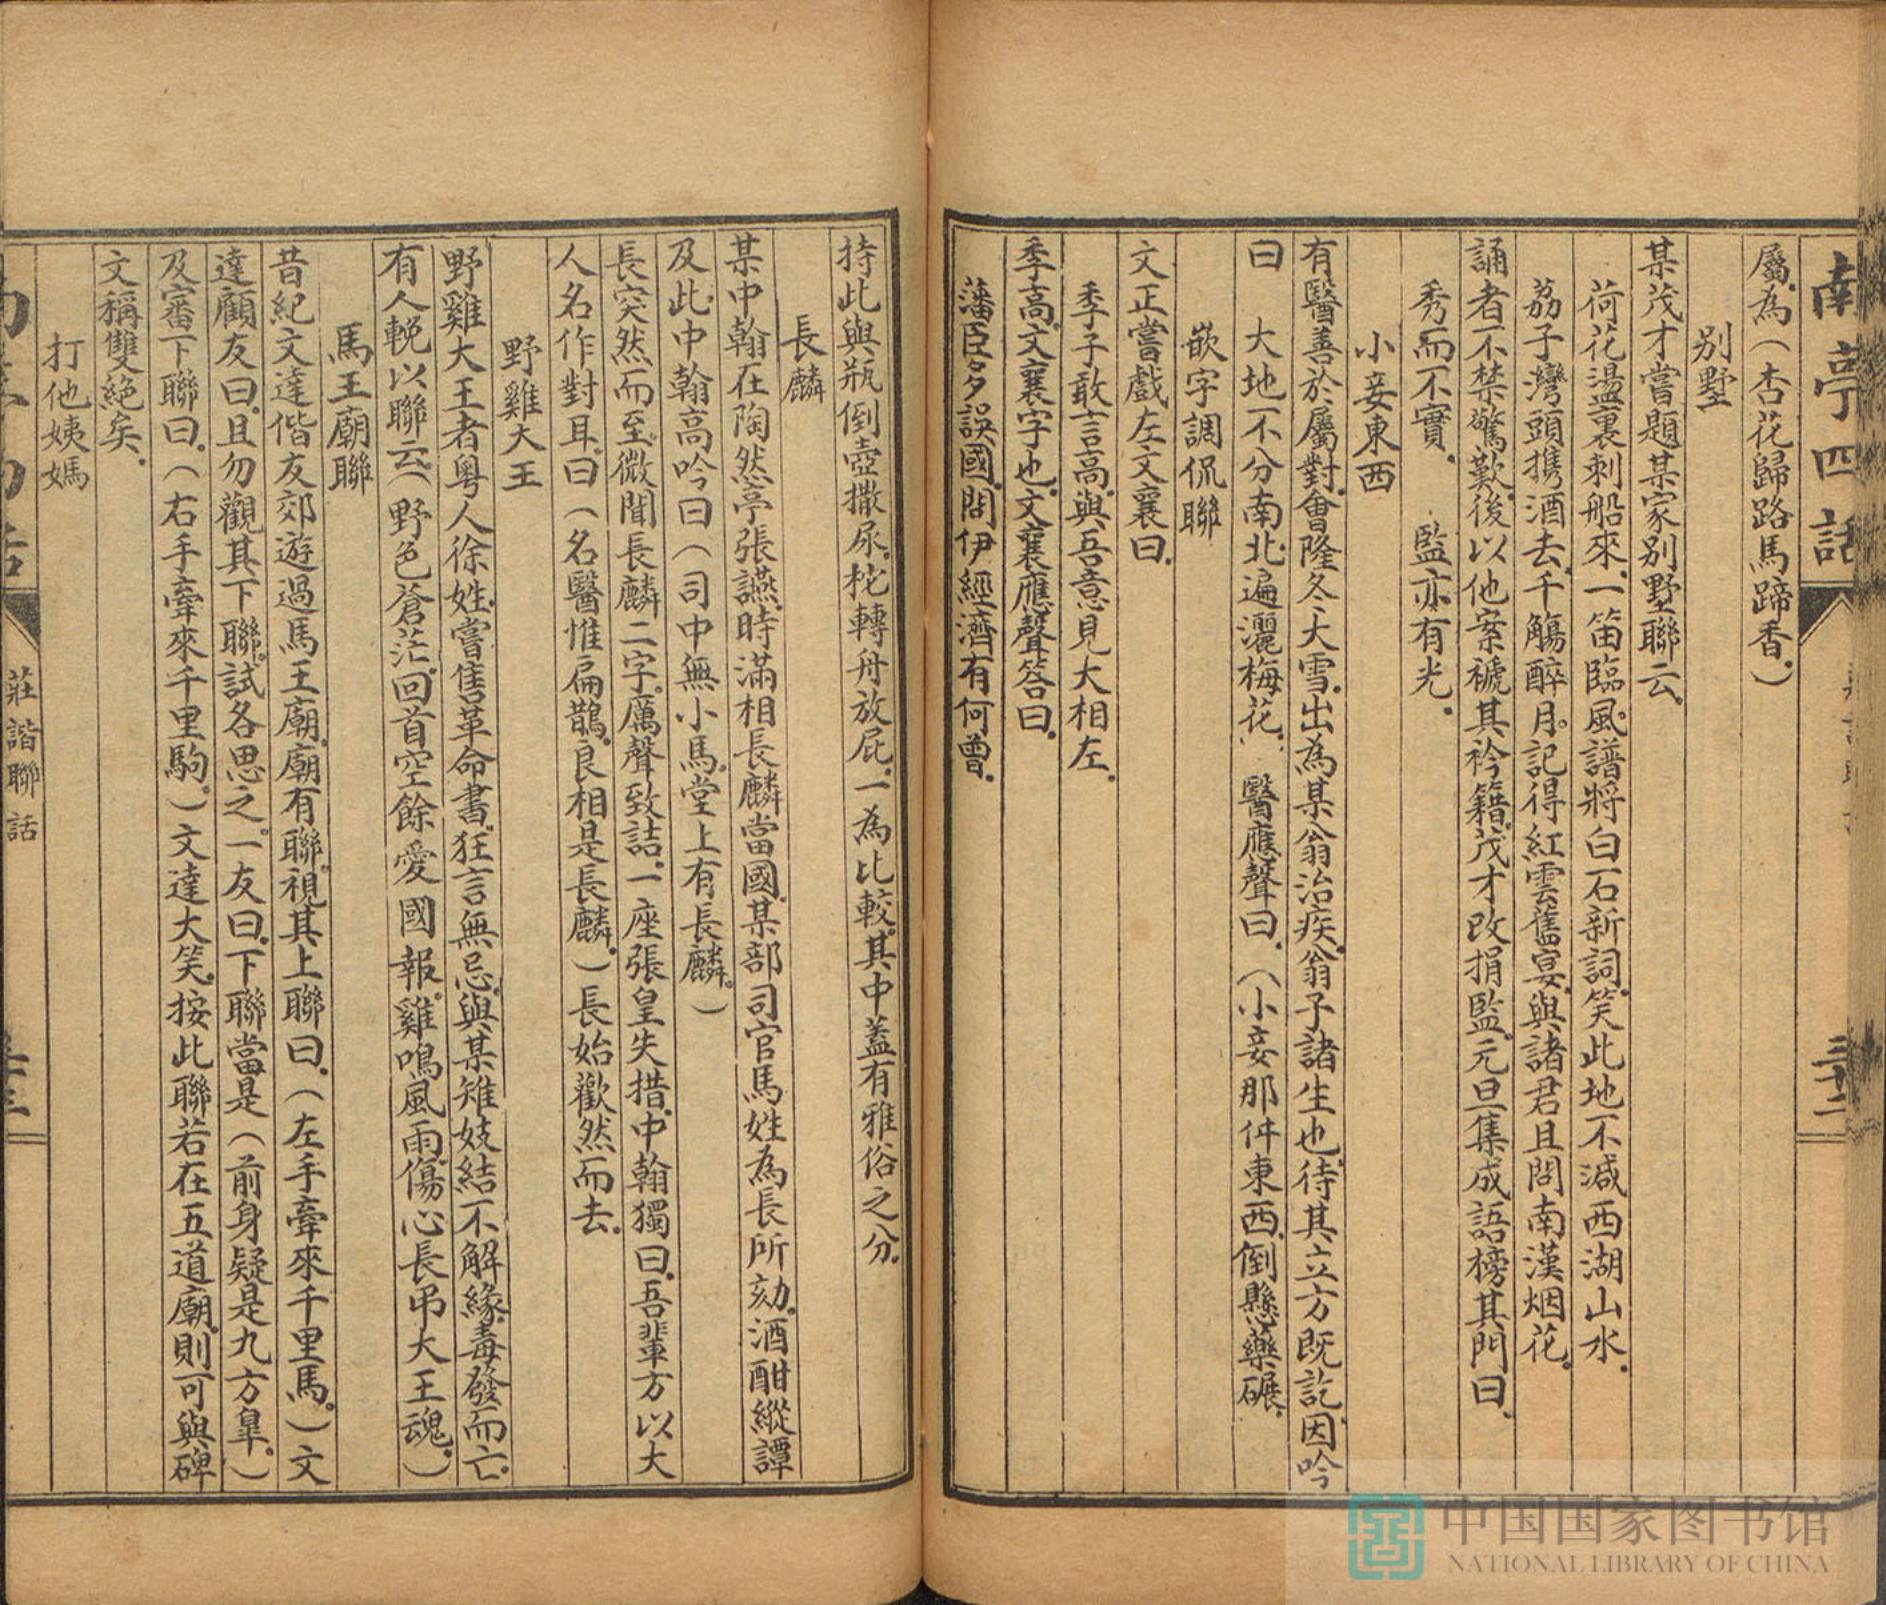 南亭四話
三十二
屬為（杏花歸路馬蹄香。）
別墅
某茂才嘗題某家别墅聯云。
荷花盪裏刺船來。一笛臨風。譜將白石新詞。笑此地不減西湖山水。
荔子灣頭携酒去。千觴醉月。記得紅雲舊宴。與諸君且問南漢烟花。
誦者不禁驚歎。後以他案褫其衿籍。茂才改捐監。元旦集成語榜其門曰。
秀而不實。　監亦有光。
小妾東西
有醫善於屬對。會隆冬大雪。出為某翁治疾。翁子諸生也。待其立方既訖。因吟
曰　大地不分南北。遍灑梅花。　醫應聲曰。（小妾那件東西。倒懸藥碾。
嵌字調侃聯
文正嘗戲左文襄曰。
季子敢言高。與吾意見大相左。
季高。文襄字也。文襄應聲答曰。
藩臣多誤國。問伊經濟有何曾。
持此與瓶倒壺撒尿。柁轉舟放屁。一為比較。其中蓋有雅俗之分。
長麟
某中翰在陶然亭張讌。時滿相長麟當國。某部司官馬姓為長所劾。酒酣縱譚
及此。中翰高吟曰（司中無小馬。堂上有長麟。）
長突然而至。微聞長麟二字。厲聲致詰。一座張皇失措。中翰獨曰。吾輩方以大
人名作對耳。曰（名醫惟扁鵲。良相是長麟。）長始歡然而去。
野雞大王
野雞大王者粤人徐姓。嘗售革命書。狂言無忌。與某雉妓結不解緣。毒發而亡。
有人輓以聯云（野色蒼茫。回首空餘愛國報。雞鳴風雨。傷心長弔大王魂。）
馬王廟聯
昔紀文達偕友郊遊過馬王廟。廟有聯。視其上聯曰。（左手牽來千里馬。）文
達顧友曰。且勿觀其下聯。試各思之。一友曰。下聯當是（前身疑是九方臯。）
及審下聯曰。（右手牽來千里駒。）文達大笑。按此聯若在五道廟。則可與碑
文稱雙絕矣。
打他姨媽
莊諧聯話